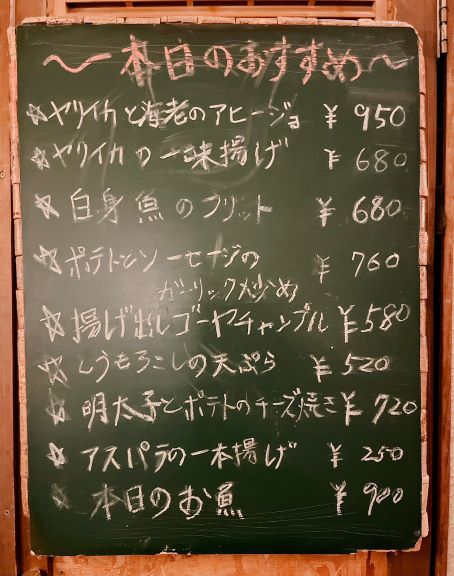 〜本日のおすすめ〜
☆ヤリイカと海老のアヒージョ ¥950
☆ヤリイカの一味揚げ ¥680
☆白身魚のフリット ¥680
☆ポテトとソーセージの ¥760
ガーリック炒め
☆揚げ出しゴーヤチャンプル ¥580
☆とうもろこしの天ぷら ¥520
☆明太子とポテトのチーズ焼き ¥720
☆アスパラの一本揚げ ¥250
☆本日のお魚 ¥900